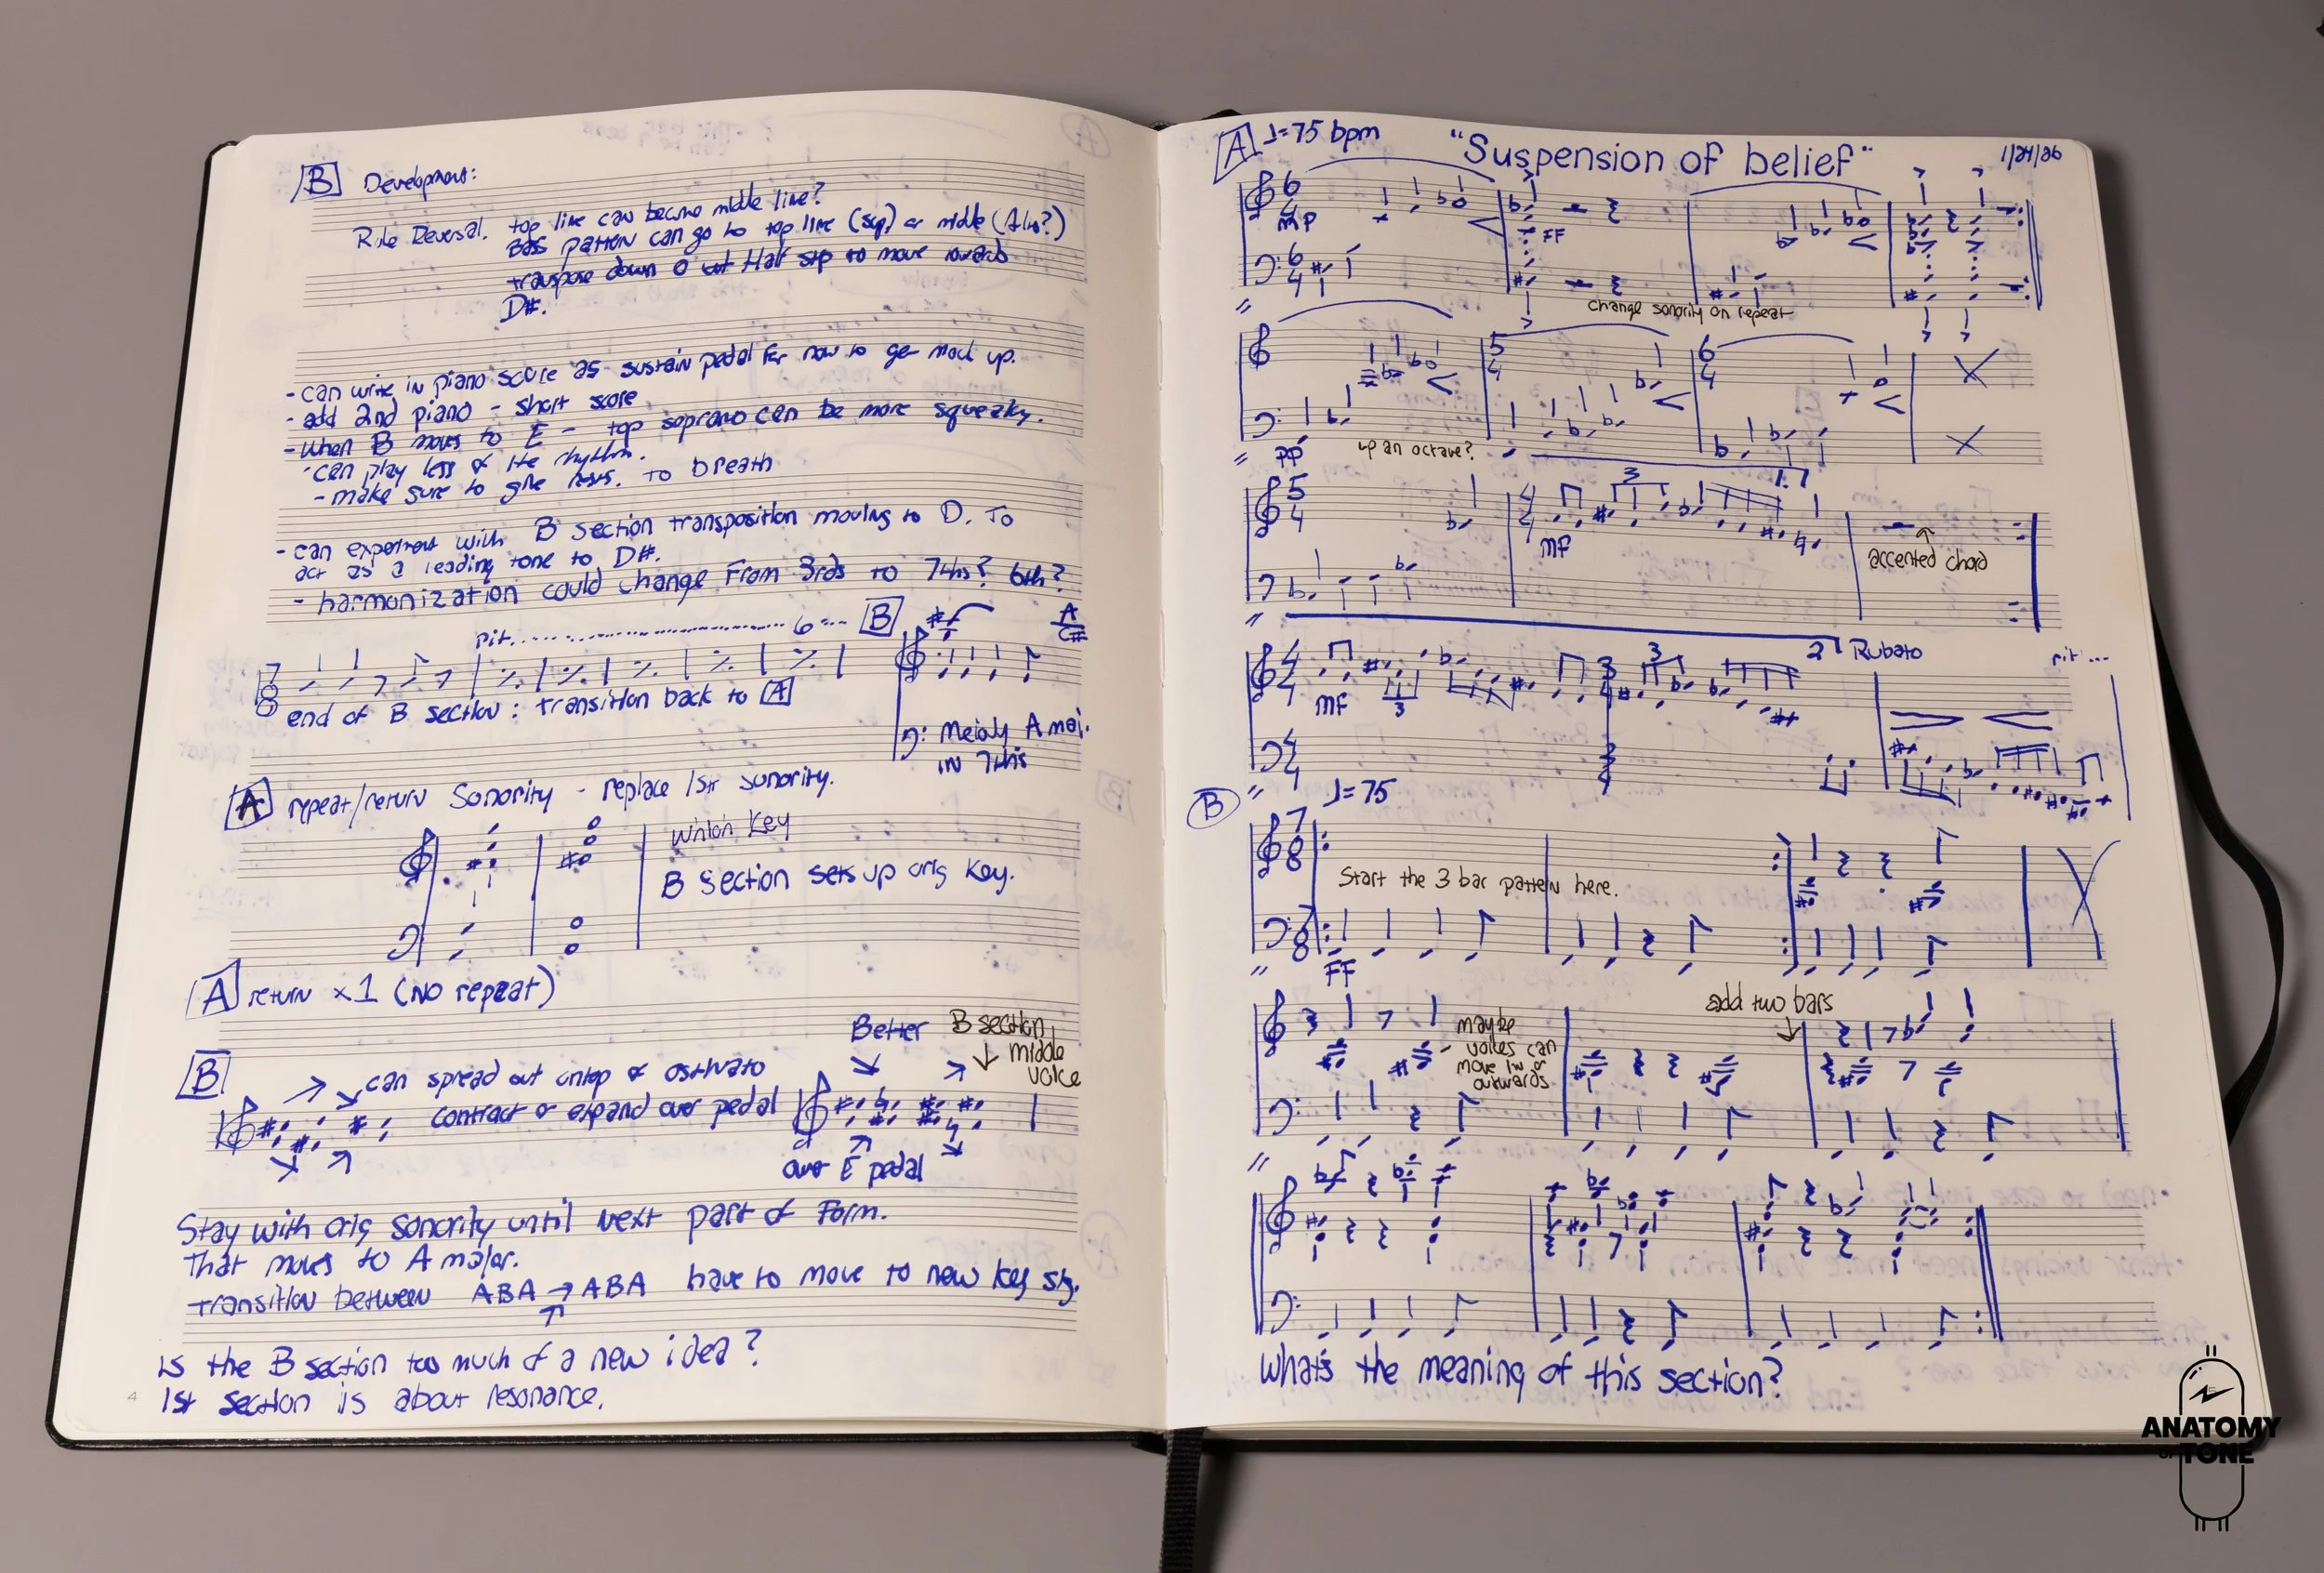 B Development:
Role Reversal. top line can become middle line?
Bass pattern can go to top line (sop) or middle (Alto?)
transpose down a half step to move towards
D#.
- can write in piano score as sustain pedal for now to get mock up.
- add 2nd piano - short score
- when B moves to E - top soprano can be more squeaky.
- can play less of the rhythm.
- make sure to give rests. To breath
- can experiment with B section transposition moving to D. To
act as a leading tone to D#.
- harmonization could change from 3rds to 7ths? 6th?
rit. 6 B A/C#
7/8 end of B section: transition back to A
Melody A maj.
in 7ths
A repeat/return Sonority - replace 1st sonority.
which key
B section sets up orig key.
A return x1 (No repeat)
Better B section
middle
voice
B can spread out ontop of ostinato
contract or expand over pedal
over E pedal
Stay with orig sonority until next part of form.
That moves to A major.
transition between ABA → ABA have to move to new key sig.
is the B section too much of a new idea?
1st section is about resonance.
4
A ♩=75 bpm "Suspension of belief" 1/24/26
6/4 mp FF
6/4
change sonority on repeat
5/4 6/4
up an octave?
pp
3 1.
5/4 4/4 mf
accented chord
2 Rubato rit...
4/4 mf 3 3/4 3
4/4 3/4
B ♩=75
7/8
Start the 3 bar pattern here.
7/8
FF
add two bars
maybe
voices can
move in or
outwards
What's the meaning of this section?
ANATOMY
OF TONE